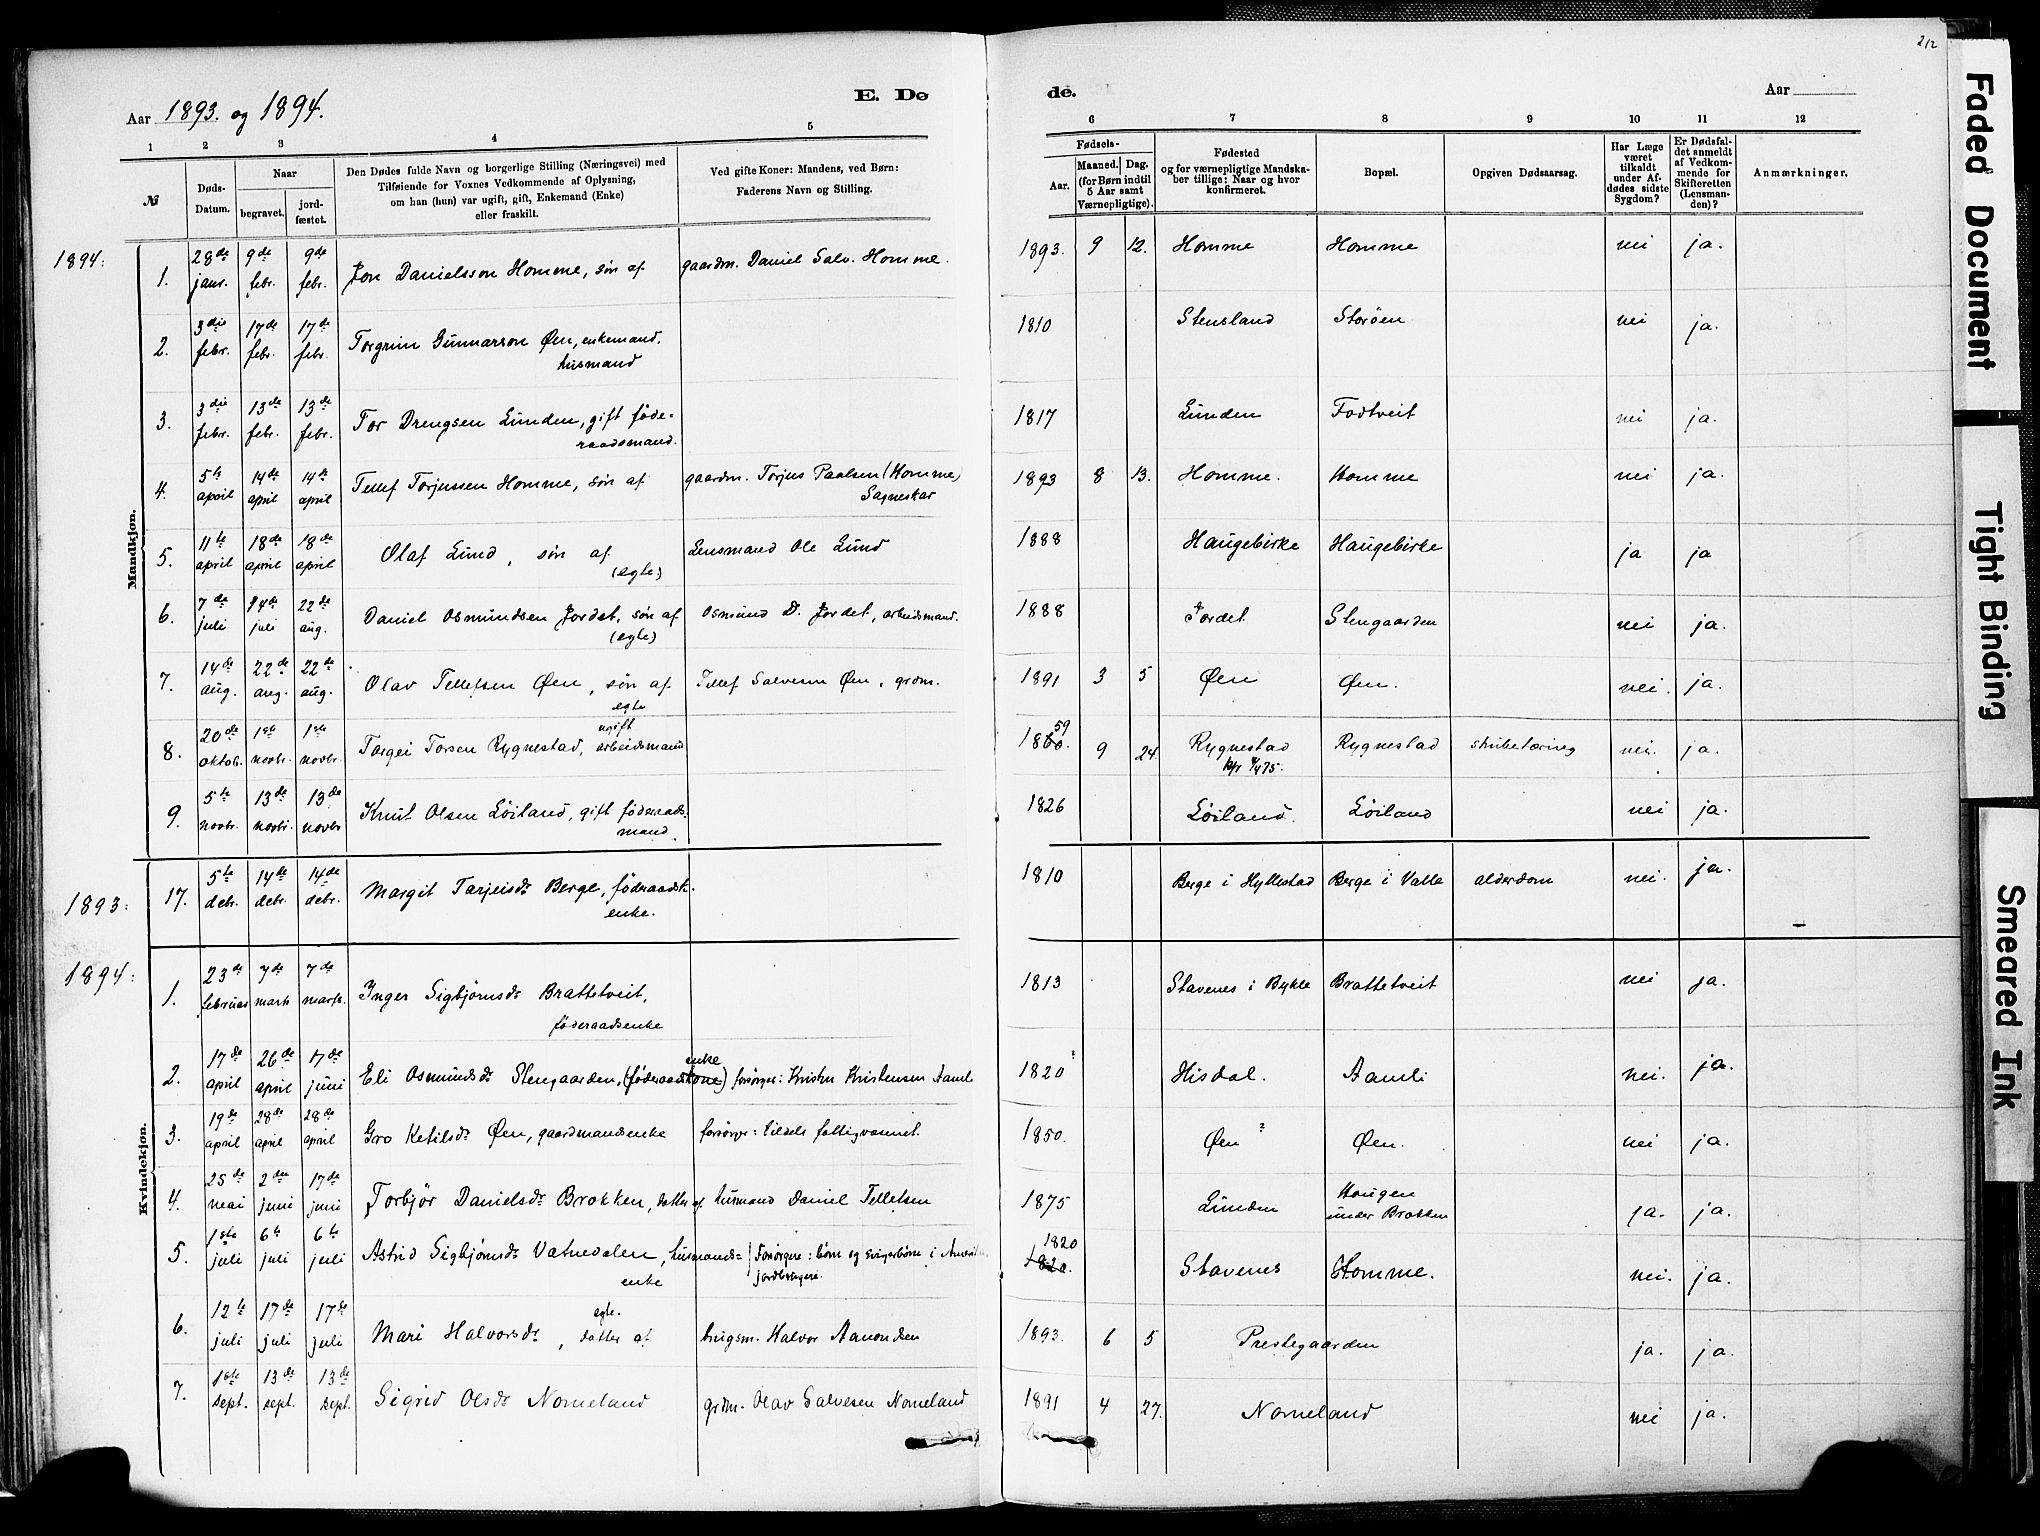 212
Aar 1893. og 1894.
E. Dø
de.
Aar
1 2 3 4 5
6 7 8 9 10 11 12
№
Døds-Datum.
Naar
begravet.
jordfæstet.
Den Dødes fulde Navn og borgerlige Stilling (Næringsvei) med
Tilføiende for Voxnes Vedkommende af Oplysning,
om han (hun) var ugift, gift, Enkemand (Enke)
eller fraskilt.
Ved gifte Koner: Mandens, ved Børn:
Faderens Navn og Stilling.
Fødsels-
Aar.
Maaned. Dag.
(for Børn indtil
5 Aar samt
Værnepligtige).
Fødested
og for værnepligtige Mandska-
ber tillige: Naar og hvor
konfirmeret.
Bopæl.
Opgiven Dødsaarsag.
Har Læge
været
tilkaldt
under Af-
dødes sidste
Sygdom?
Er Dødsfal-
det anmeldt
af Vedkom-
mende for
Skifteretten
(Lensman-
den)?
Anmærkninger.
Mandkjøn.
1894:
1. 28de janr. 9de febr. 9de febr. Jon Danielsson Homme, søn af gaardm. Daniel Salv. Homme. 1893. 9 12. Homme Homme nei ja.
2. 3die febr. 17de febr. 17de febr. Torgrim Gunnarson Øen, enkemand, 1810 Stensland Storöen nei ja.
husmand
3. 3die febr. 13de febr. 13de febr. Tor Drengsen Lunden, gift føde- 1817 Lunden Fodtveit nei ja.
raadsmand.
4. 5te april 14de april 14de april Tellef Torjussen Homme, søn af gaardm. Torjus Paalsen (Homme) 1893 8 13. Homme. Homme nei ja.
Sagneskar
5. 11te april 18de april 18de april Olaf Lund, søn af Lensmand Ole Lund 1888 Haugebirke Haugebirke ja ja
(egte)
6. 7de juli 14de juli 22de aug. Daniel Osmundsen Jordet, søn af Osmund D. Jordet, arbeidsmand. 1888 Jordet Stengaarden nei ja.
(egte)
7. 14de aug. 22de aug. 22de aug. Olav Tellefsen Øen, søn af Tellef Salvesen Øen, grdm. 1891 3 5 Øen Øen. nei. ja.
egte
8. 20de oktobr. 1ste novbr. 1ste novbr. Torgei Torsen Rygnestad, ugift arbeidsmand 1860. 59 9 24. Rygnestad Rygnestad strubetæring nei. ja.
9. 5te novbr. 13de novbr. 13de novbr Knut Olsen Løiland, gift føderaads- 1826 Løiland. Løiland nei ja.
mand.
1893:
17. 5te debr. 14de debr. 14de debr. Margit Tarjeisdr Berge, føderaadsk. 1810 Berge i Hyllestad Berge i Valle alderdom nei. ja.
enke.
Kvindekjøn.
1894:
1. 23de februar 7de marts 7de marts. Inger Sigbjørnsdr Brattetveit, 1813 Stavenes i Bykle Brattetveit nei ja.
føderaadsenke
2. 17de april 26de april 17de juni Eli Osmundsdr Stengaarden, (føderaadskone) enke forsørger: Kristen Kristensen Aamli 1820 ? Hisdal. Aamli nei. ja.
3. 19de april 28de april 28de april Gro Ketilsdr Øen, gaardmandsenke forsørger: Sildels fattigvæsnet. 1850. Øen ? Øen. nei ja.
4. 25de mai 2den juni 17de juni Torbjør Danielsdr Brokken, datter af husmand Daniel Tellefsen 1875 Lunden Haugen under Brokken ja. ja.
5. 1ste juli 6te juli 6te juli Astrid Sigbjørnsdr Vatnedalen, husmands- Forsørgere: børn og svigerbørn i 1820 1820. Stavenes Homme. nei. ja.
enke jordbrugere.
6. 12te juli 17de juli 17de juli Mari Halvorsdr, egte. datter af brugsm. Halvor Aanondsen 1893. 6 5 Prestegaarden ja. ja.
7. 1ste sept. 13de sept. 13de sept. Sigrid Olsdr Nomeland grdm. Olav Salvesen Nomeland 1891 4 27. Nomeland nei ja.
Faded Document
Tight Binding
Smeared Ink